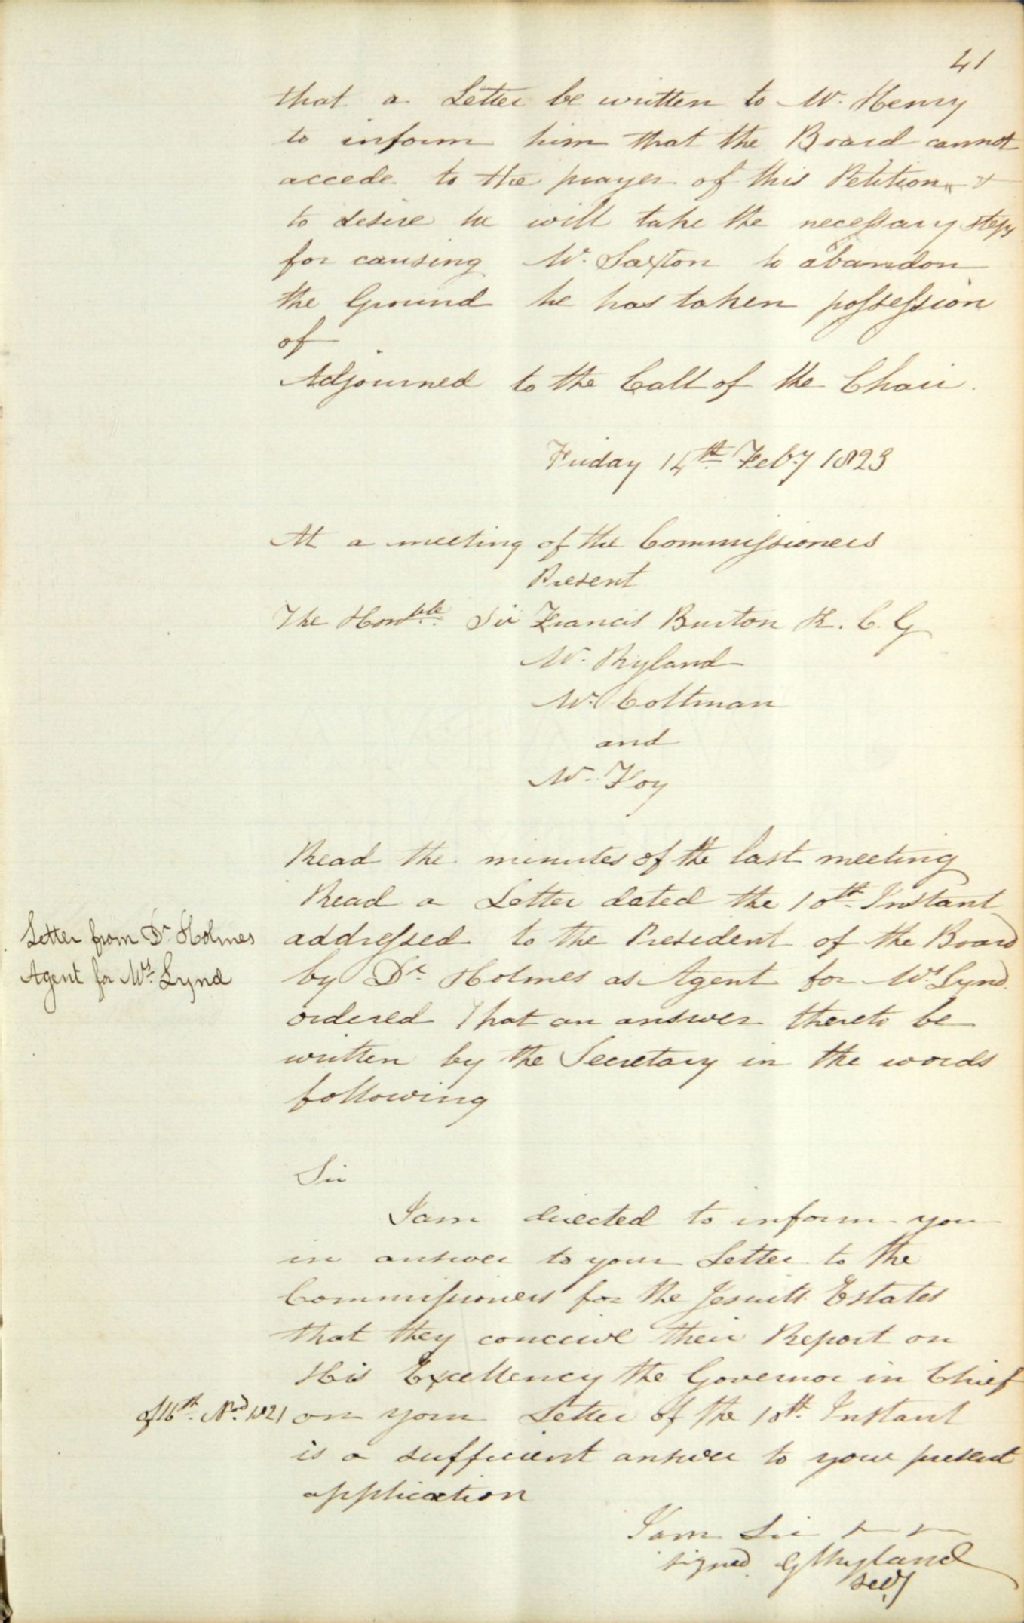 41
that a Letter be written to Mr. Henry
to inform him that the Board cannot
accede to the prayer of this Petition, &
to desire he will take the necessary steps
for causing Mr. Saxton to abandon
the Ground he has taken possession
of
Adjourned to the Call of the Chair.
Friday 14th Feby 1823
At a meeting of the Commissioners
Present
The Honble Sir Francis Burton K. C. G
Mr. Ryland
Mr. Coltman
and
Mr. Foy
Read the minutes of the last meeting
Read a Letter dated the 10th Instant
Letter from Dr Holmes
Agent for Mrs Lynd
addressed to the President of the Board
by Dr Holmes as Agent for Mrs Lynd.
ordered That an answer thereto be
written by the Secretary in the words
following
Sir
I am directed to inform you
in answer to your Letter to the
Commissioners for the Jesuits Estates
that they conceive their Report on
His Excellency the Governor in Chief
of 16th 1821
on your Letter of the 10th Instant
is a sufficient answer to your present
application
I am Sir
signed Ryland
Secy